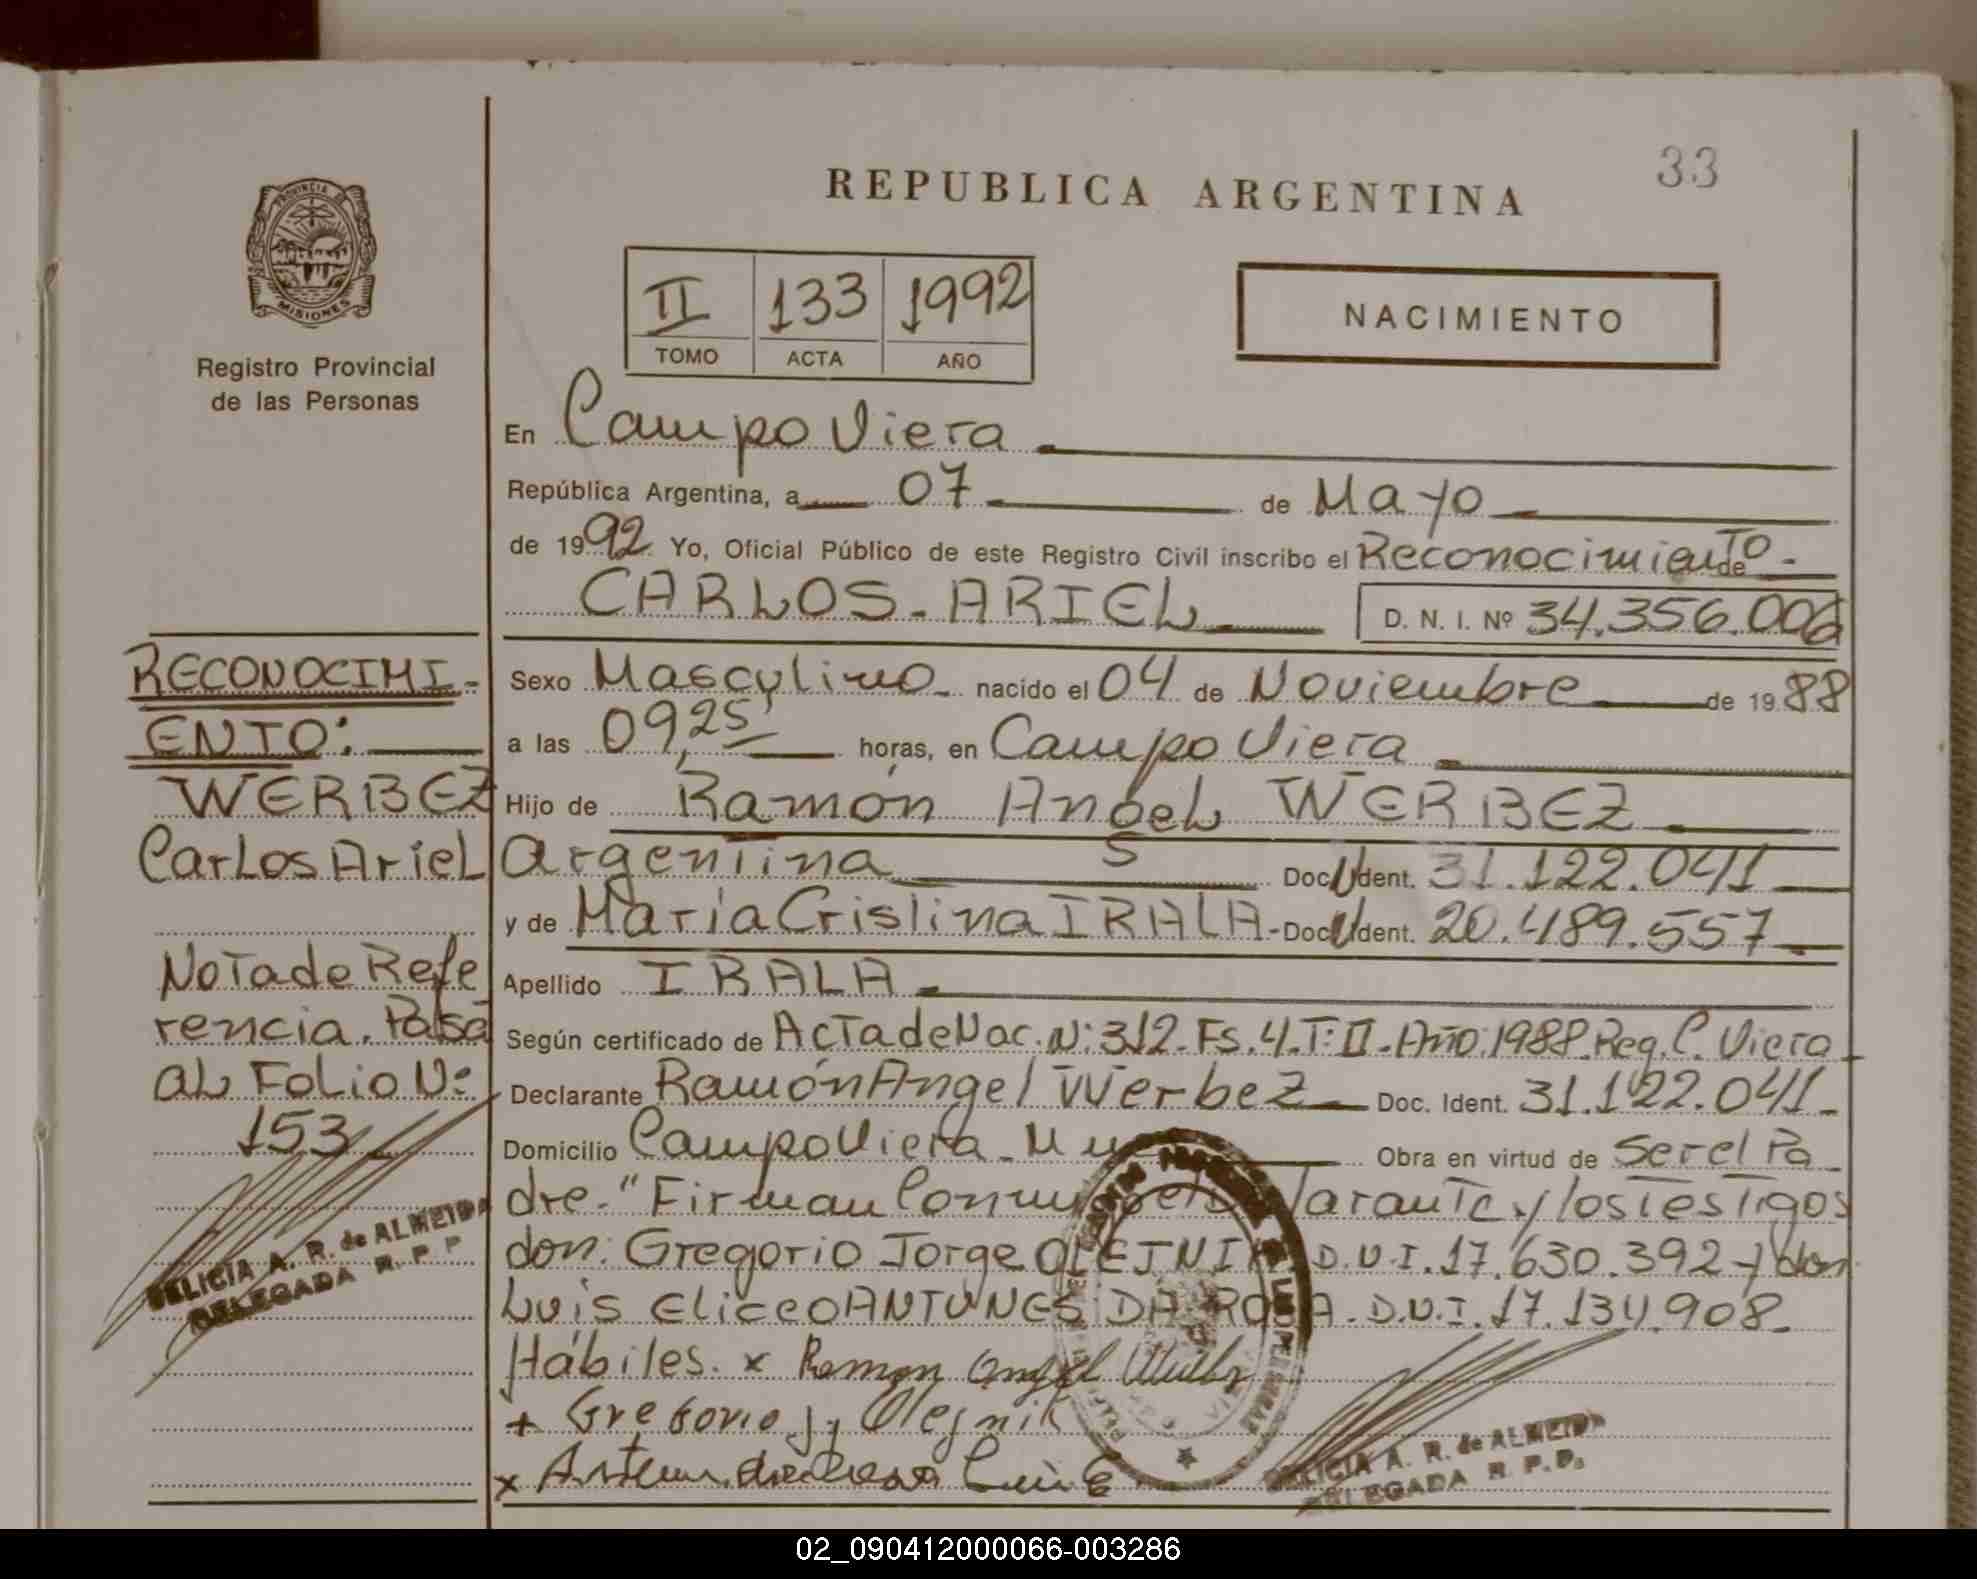 33
REPUBLICA ARGENTINA
PROVINCIA DE
MISIONES
Registro Provincial
de las Personas
II 133 1992
TOMO ACTA AÑO
NACIMIENTO
En Campo Viera
República Argentina, a 07 de Mayo
de 1992 Yo, Oficial Público de este Registro Civil inscribo el Reconocimiento de
CARLOS - ARIEL D. N. I. Nº 34.356.006
Sexo Masculino nacido el 04 de Noviembre de 1988
a las 09,25 horas, en Campo Viera
Hijo de Ramón Angel WERBEZ
Argentina Doc. Ident. 31.122.041
y de María Cristina IRALA - Doc. Ident. 20.489.557
Apellido IRALA
Según certificado de Acta de Nac. N: 312 - Fs. 4. T: II - Año: 1988. Reg. C. Viera
Declarante Ramón Angel Werbez Doc. Ident. 31.122.041
Domicilio Campo Viera - Obra en virtud de Ser el Pa
dre. "Firman los testigos
don: Gregorio Jorge OLEJNIK D.N.I. 17.630.392 y don
Luis Eliceo ANTUNES DA ROSA. D.N.I. 17.134.908
Hábiles. x Ramon Angel
+ Gregorio J, Olejnik
x Luis E
RECONOCIMI -
ENTO:
WERBEZ
Carlos Ariel
Nota de Refe
rencia. Pasa
al Folio N:
153
DELICIA A. R. de ALMEIDA
DELEGADA R. P. P
DELICIA A. R. de ALMEIDA
DELEGADA R. P. P.
02_090412000066-003286